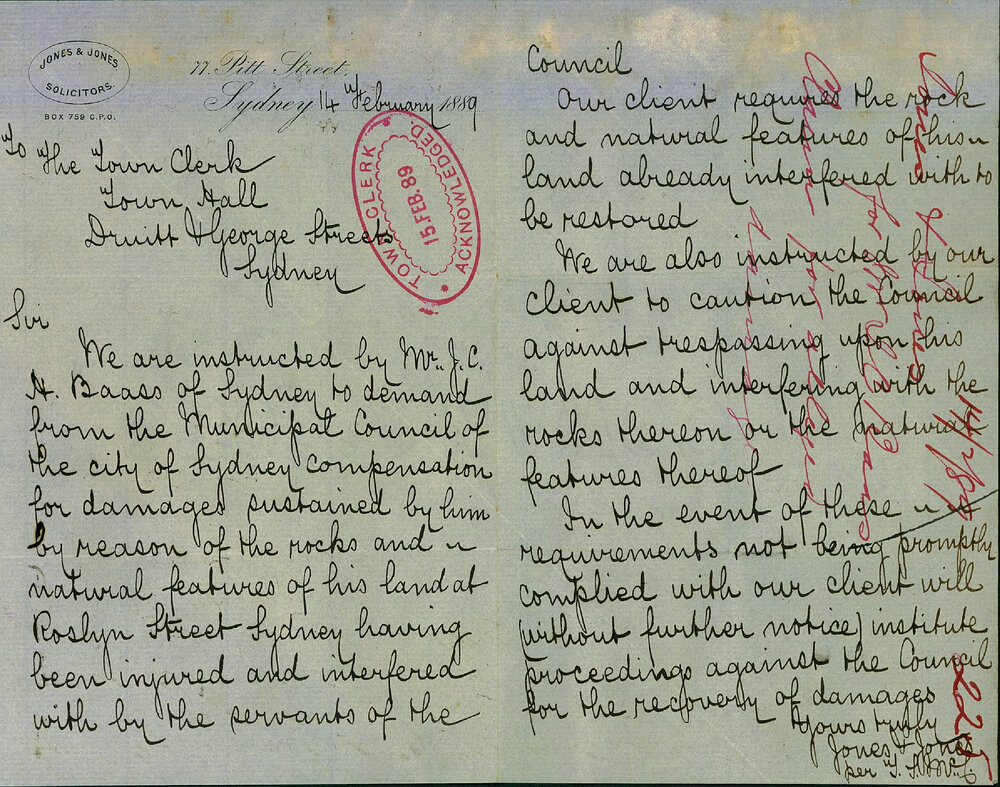 JONES & JONES.
SOLICITORS.
BOX 759 G.P.O.
77. Pitt Street.
Sydney 14th February 1889
To The Town Clerk
Town Hall
Druitt & George Streets
Sydney
TOWN CLERK
15. FEB. 89
ACKNOWLEDGED.
Sir
We are instructed by Mr. J. C.
H. Baass of Sydney to demand
from the Municipal Council of
the city of Sydney compensation
for damages sustained by him
by reason of the rocks and
natural features of his land at
Roslyn Street Sydney having
been injured and interfered
with by the servants of the
Council
Our client requires the rock
and natural features of his
land already interfered with to
be restored
We are also instructed by our
client to caution the Council
against trespassing upon his
land and interfering with the
rocks thereon or the natural
features thereof
In the event of these
requirements not being promptly
complied with our client will
(without further notice) institute
proceedings against the Council
for the recovery of damages
Yours truly
Jones & Jones
per
Jones & Jones
for
Claim for
14/2/89
225